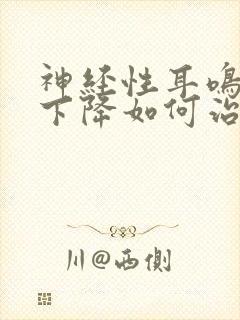 神経性耳鳴
下降如何治
川@西側